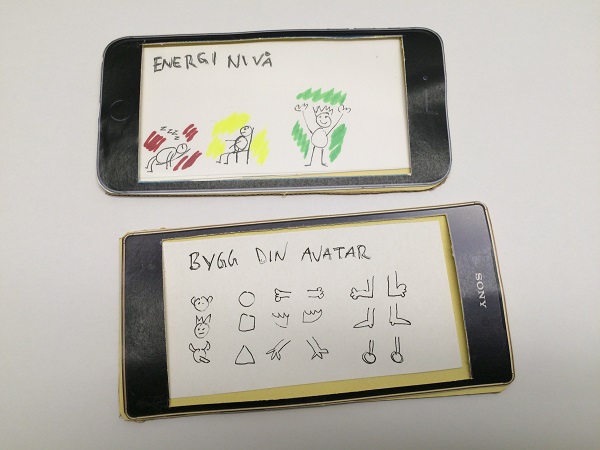 BYGG DIN AVATAR
SONY
ENERGI NIVÅ
zzzz